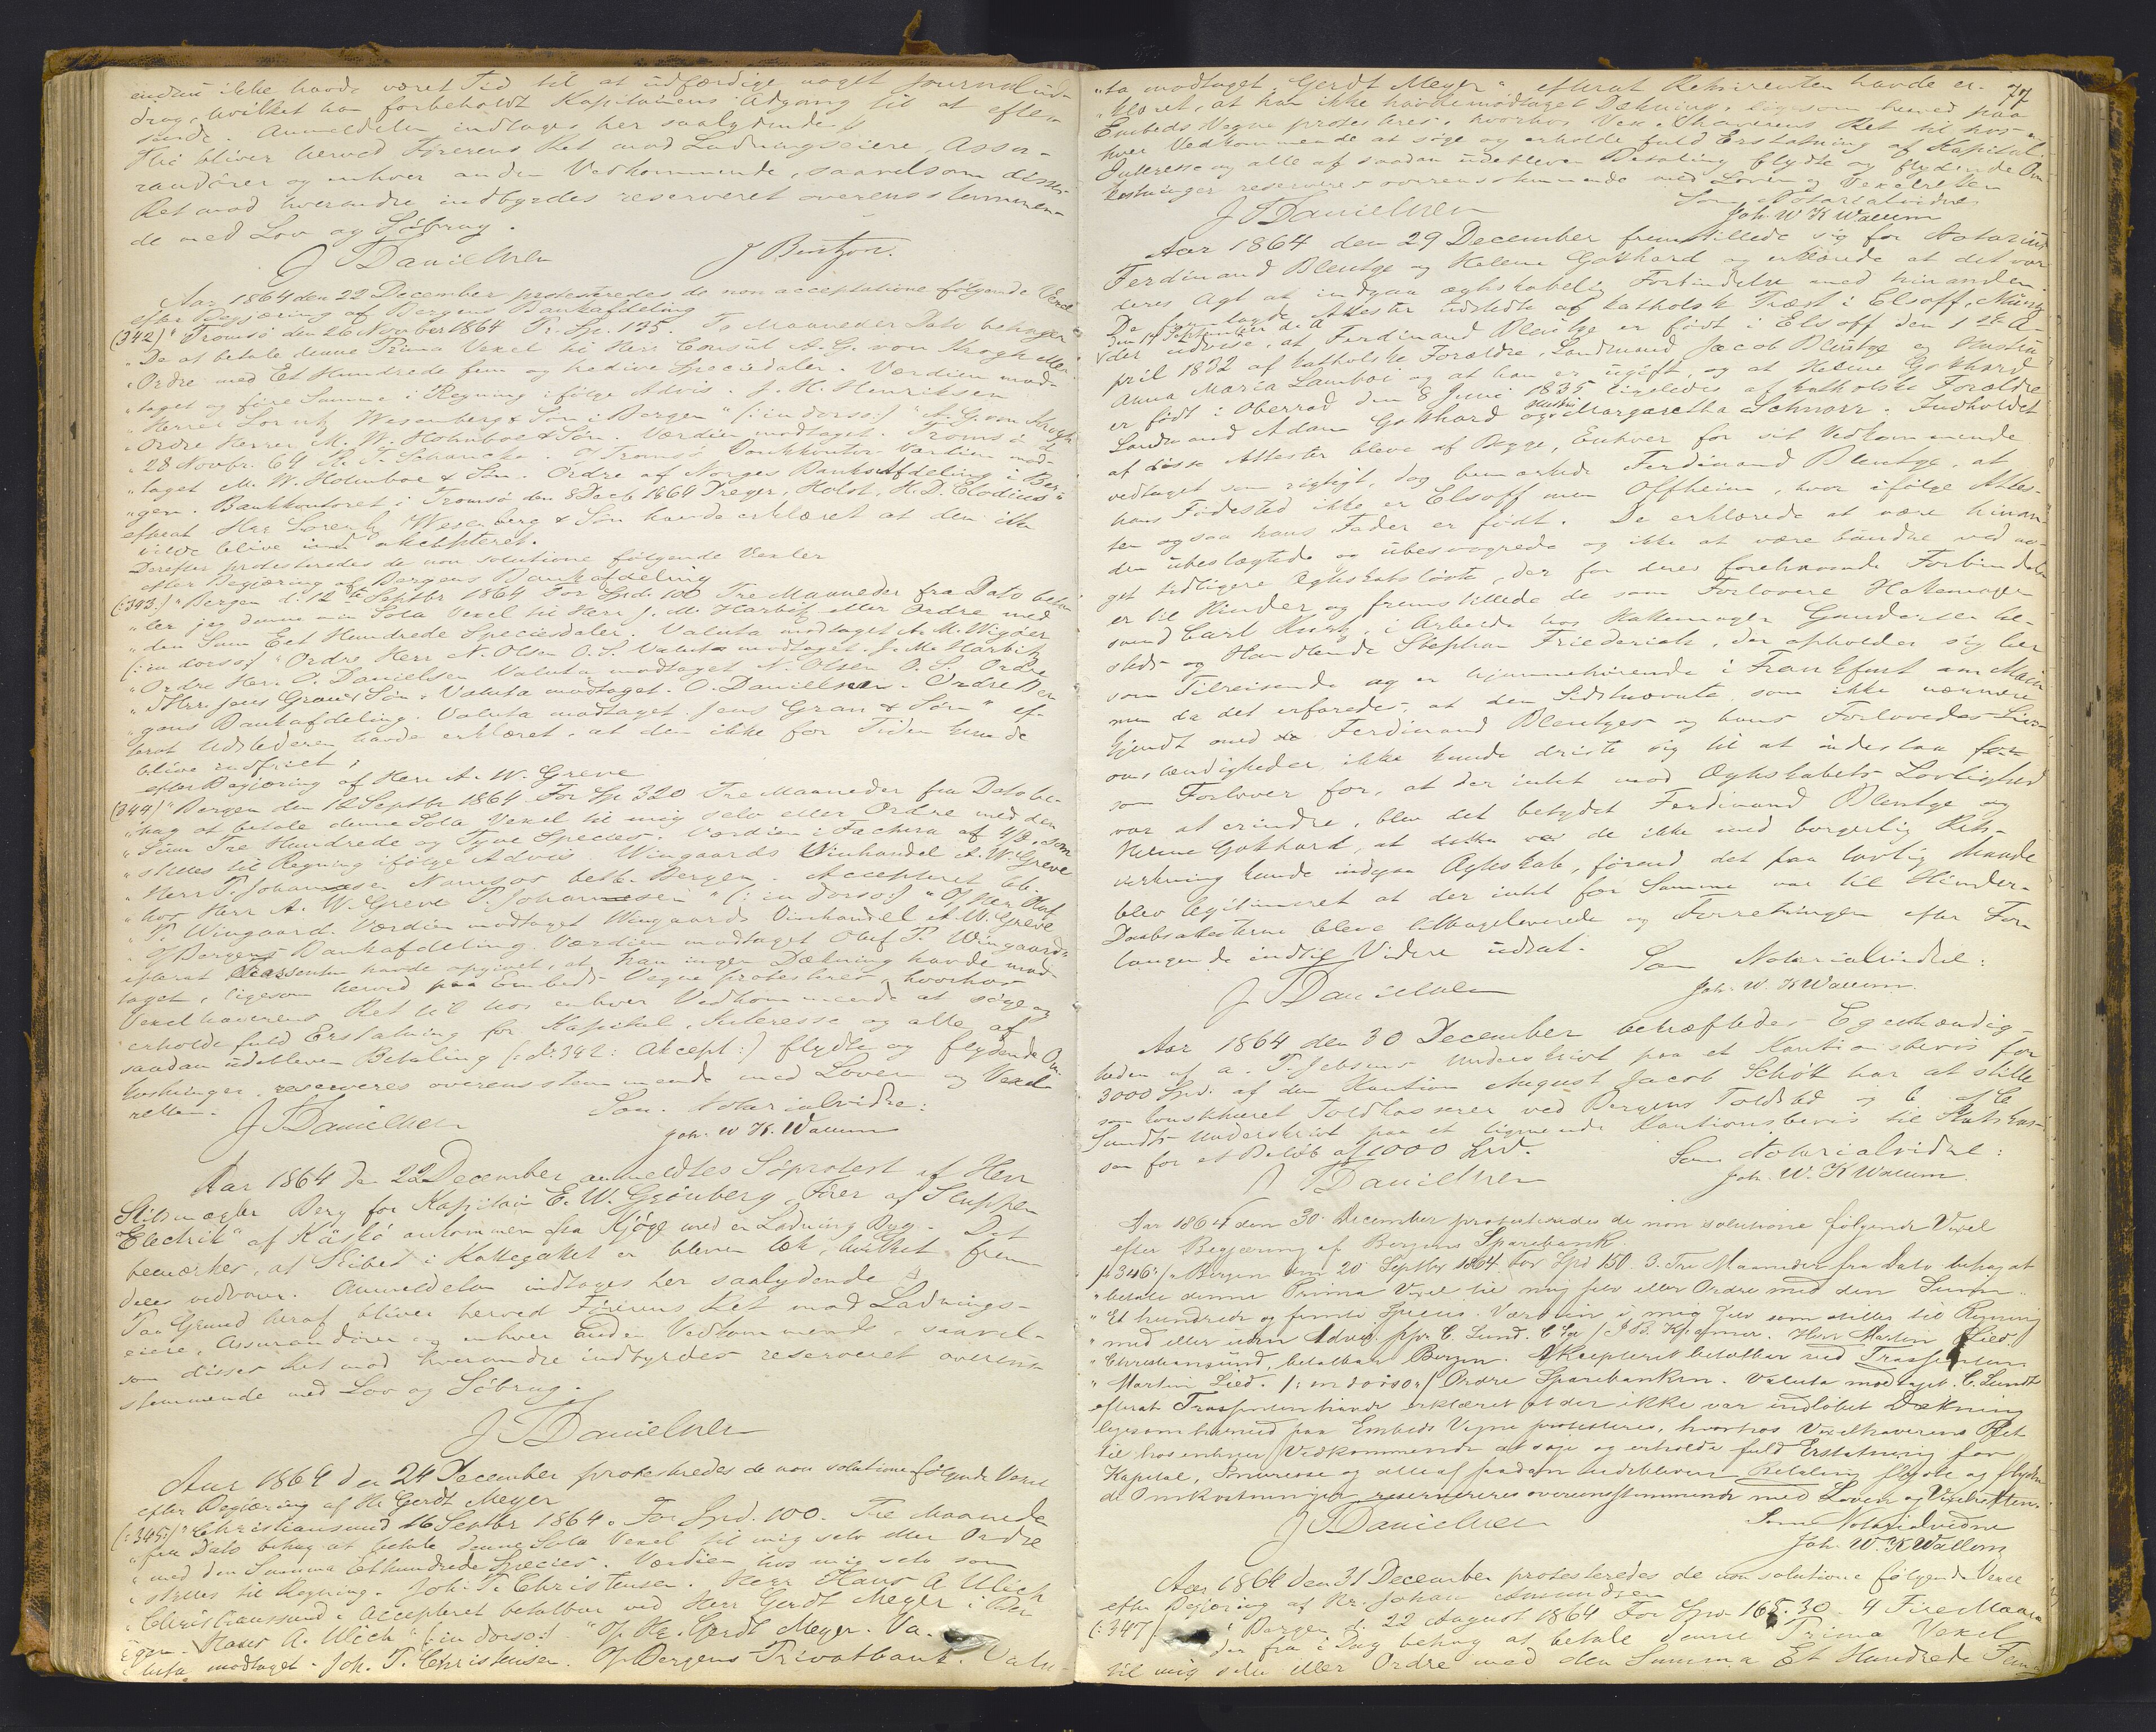 endnu ikke havde været Tid til at udfærdige noget Journalud-
drag, hvilket han forbeholdt Kapitainens Adgang til at efter-
sende. Anmeldelsen indtages her saalydende
Thi bliver herved Førerens Ret mod Ladningseiere, Assu-
randører og enhver anden Vedkommende, saavelsom disses
Ret mod hverandre indbyrdes reserveret overensstemmen-
de med Lov og Søbrug.
J Danielsen J Bentzon.
Aar 1864 den 22 December protesteredes de non acceptatione følgende Vexel
efter Begjæring af Bergens Bankafdeling
(342) "Tromsö den 26 November 1864 Pr. Sp. 135. To Maaneder Dato behager
"De at betale denne Prima Vexel til Herr Consul A. G. von Krogh eller
"Ordre med Et Hundrede fem og tredive Speciedaler. Værdien mod-
"taget og føre Samme i Regning i følge Advis. J. H. Henriksen
"Herrer Lorentz Wesenberg & Søn i Bergen" (: in dorso :) "A. G. von Krogh
"Ordre Herrer M. W. Holmboe & Søn. Værdien modtaget. Tromsö d
"28 Novbr. 64 R. F. Schancke. Tromsö Bankkontor Værdien mod-
"taget M. W. Holmboe & Søn. Ordre af Norges Banks Afdeling i Ber-
"gen. Bankkontoret i Tromsö den 8 Decb 1864 Dreyer, Holst, H. D. Clodius"
efterat Herr Lorentz Wesenberg & Søn havde erklæret at den ikke
vilde blive akcepteret.
Derefter protesteredes de non solutione følgende Vexler
efter Begjæring af Bergens Bankafdeling
(:343:) "Bergen d. 12te Septbr 1864 For Spd: 100 Tre Maaneder fra Dato beta-
"ler jeg denne min Sola Vexel til Herr J. M. Harbitz eller Ordre med
"den Sum Eet Hundrede Speciesdaler. Valuta modtaget A. M. Wigner
(: in dorso :) "Ordre Herr N. Olsen O. S. Valuta modtaget. J. M. Harbitz
"Ordre Herr O. Danielsen Valuta modtaget N. Olsen O. S. Ordre
"Herr Jens Gran & Søn. Valuta modtaget. O. Danielsen. Ordre Ber
"gens Bankafdeling. Valuta modtaget. Jens Gran & Søn" ef-
terat Udstederen havde erklæret, at den ikke for Tiden kunde
blive indfriet;
efter Begjæring af Herr A. W. Greve
(344) "Bergen den 12 Septbr 1864 For Sp 320 Tre Maaneder fra Dato be-
"hag at betale denne Sola Vexel til mig selv eller Ordre med den
"Sum Tre Hundrede og Tyve Species. Værdien i Factura af som
"stilles til Regning ifølge Advis Wingaards Vinhandel A. W. Greve
"Herr P. Johannesen Namsos betb. Bergen. Accepteret bb.
"hos Herr A. W. Greve P. Johannesen" (: in dorso :) "Of Herr Oluf
"P. Wingaard. Værdien modtaget Wingaards Vinhandel A. W. Greve
"Of Bergens Bankafdeling. Værdien modtaget Oluf P. Wingaard"
efterat Trassenten havde opgivet, at han ingen Dækning havde mod-
taget, ligesom herved paa Embeds Vegne protesteres, hvorhos
Vexelhaverens Ret til hos enhver Vedkommende at søge og
erholde fuld Erstatning for Kapital, Interesse og alle af
saadan udebleven Betaling (: No 342: Akcept :) flydte og flydende Om-
kostninger reserveres overensstemmende med Loven og Vexel
retten.
J Danielsen Som Notarialvidne:
Joh. W K. Wallem
Aar 1864 den 22 December anmeldtes Søprotest af Herr
Skibsmægler Berg for Kapitain E. W. Grönberg, Fører af Sluppen
"Electrik" af Käskö ankommen fra Kjöge med en Ladning Byg. Det
bemærkes, at Skibet i Kattegattet er bleven læk, hvilket frem-
deles vedvarer. Anmeldelsen indtages her saalydende
Paa Grund heraf bliver herved Førerens Ret mod Ladnings-
eiere, Assurandører og enhver anden Vedkommende, saavel-
som disses Ret mod hverandre indbyrdes reserveret overens-
stemmende med Lov og Søbrug.
J Danielsen
Aar 1864 den 24 December protesteredes de non solutione følgende Vexel
efter Begjæring af Hr Gerdt Meyer
(:345:) "Christiansund 16 Septbr 1864. For Spd. 100. Tre Maaneder
"fra Dato behag at betale denne Sola Vexel til mig selv eller Ordre
"med den Summa Ethundrede Species. Værdien hos mig selv som
"stilles til Regning. Joh. T. Christensen. Herr Hans A Ulich
"Christianssund. Accepteret betalbar ved Herr Gerdt Meyer i Ber
"gen. Hans A. Ulich" (: in dorso :) "Of Hr. Gerdt Meyer. Va-
"luta modtaget. Joh. T. Christensen. Of Bergens Privatbank. Valu-
77
"ta modtaget. Gerdt Meyer" efterat Rekvirenten havde er-
klæret, at han ikke havde modtaget Dækning, ligesom herved paa
Embeds Vegne protesteres, hvorhos Vexelhaverens Ret til hos en-
hver Vedkommende at søge og erholde fuld Erstatning af Kapital
Interesse og alle af saadan udebleven Betaling flydte og flydende Om-
kostninger reserveres overensstemmende med Loven og Vexelretten
J Danielsen Som Notarialvidne
Joh. W K Wallem
Aar 1864 den 29 December fremstillede sig for Notarius
Ferdinand Blentge og Helene Gotthard og erklærede at det var
deres Agt at indgaa ægteskabelig Forbindelse med hinanden.
De fremlagde Attester udstedte af katholsk Præst i Elsoff, Müng
den 14 September d. A
der udvise, at Ferdinand Blentge er født i Elsoff den 1ste A-
pril 1832 af katholske Forældre, Landmand Jacob Blentge og Hustru
Anna Maria Lamboi og at han er ugift, og at Helene Gotthard
er født i Oberrad den 8 Juni 1835 ligeledes af katholske Forældre
Landmand Adam Gotthard og Hustru Margaretha Schnorr. Indholdet
af disse Attester bleve af Begge, Enhver for sit Vedkommende
vedtaget som rigtigt, dog bemærkede Ferdinand Blentge, at
hans Fødested ikke er Elsoff men Offheim, hvor ifølge Attes-
ten ogsaa hans Fader er født. De erklærede at være hinan-
den ubeslægtede og ubesvogrede og ikke at være bundne ved no-
get tidligere Ægteskabsløfte, der for deres forehavende Forbindelse
er til Hinder og fremstillede de som Forlovere Hattemager
svend Carl Kusk, i Arbeide hos Hattemager Gundersen he-
steds og Handlende Stephan Friederich, der opholder sig her
som Tilreisende og er hjemmehørende i Frankfurt am Main
men da det erfaredes, at den Sidstnævnte, som ikke nærmere
kjendt med Ferdinand Blentges og hans Forlovedes Livs-
omstændigheder, ikke kunde driste sig til at indestaa
som Forlover for, at der intet mod Ægteskabets Lovlighed
var at erindre, blev det betydet Ferdinand Blentge og
Helene Gotthard, at de ikke med borgerlig Rets-
virkning kunde indgaa Ægteskab, førend det paa lovlig Maade
blev legitimeret at der intet for Samme var til Hinder.
Daabsattesterne bleve tilbageleverede og Forretningen efter For-
langende indtil Videre udsat.
J Danielsen Som Notarialvidne:
Joh. W. K Wallem.
Aar 1864 den 30 December bekræftedes Egenhændig-
heden af a. T. Jebsens Underskrivt paa et Kautionsbevis for
3000 Spd. af den Kaution August Jacob Schött har at stille
som konstitueret Toldkasserer ved Bergens Toldsted og C.
Sundts Underskrivt paa et lignende Kautionsbevis til Statskas-
sen for et Beløb af 1000 Spd.
J Danielsen Som Notarialvidne:
Joh. W. K Wallem.
Aar 1864 den 30 December protesteredes de non solutione følgende Vexel
efter Begjæring af Bergens Sparebank.
(:346:) "Bergen den 20 Septbr 1864. For Spd 150. 3. Tre Maaneder fra Dato behag at
"betale denne Prima Vexel til mig selv eller Ordre med den Summ
"Et hundrede og femti Species. Værdien i mig selv som stilles til Regning
"med eller uden Advis. ppr C. Sund. & Co / J. B. Kramer. Herr Martin Lied
"Christiansund, betalbar Bergen. Akcepteret betalbar ved Trassenten
"Martin Lied. (: in dorso :) Ordre Sparebanken. Valuta modtaget. C. Sundt
efterat Trassenten havde erklæret at der ikke var indløbet Dækning
ligesom herved paa Embeds Vegne protesteres, hvorhos Vexelhaverens Ret
til hos enhver Vedkommende at søge og erholde fuld Erstatning for
Kapital, Interesse og alle af saadan udebleven Betaling flydte og flyden-
de Omkostninger reserveres overensstemmende med Loven og Vexelretten.
J Danielsen Som Notarialvidne
Joh. W. K Wallem
Aar 1864 den 31 December protesteredes de non solutione følgende Vexel
efter Begjæring af Hr. Johan Amundsen
(:347) Bergen d. 22 August 1864 For Spd. 165.30 4 Fire Maane
der fra i Dag behag at betale denne Prima Vexel
til mig selv eller Ordre med den Summa Et Hundrede Fem